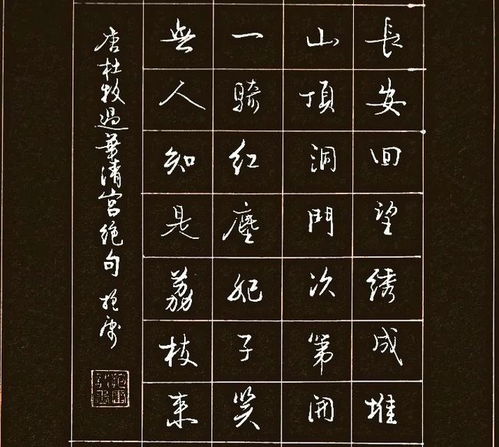 長安回望綉成堆
山頂洞門次第開
一騎紅塵妃子笑
無人知是荔枝来
唐杜牧過華清宫絶句